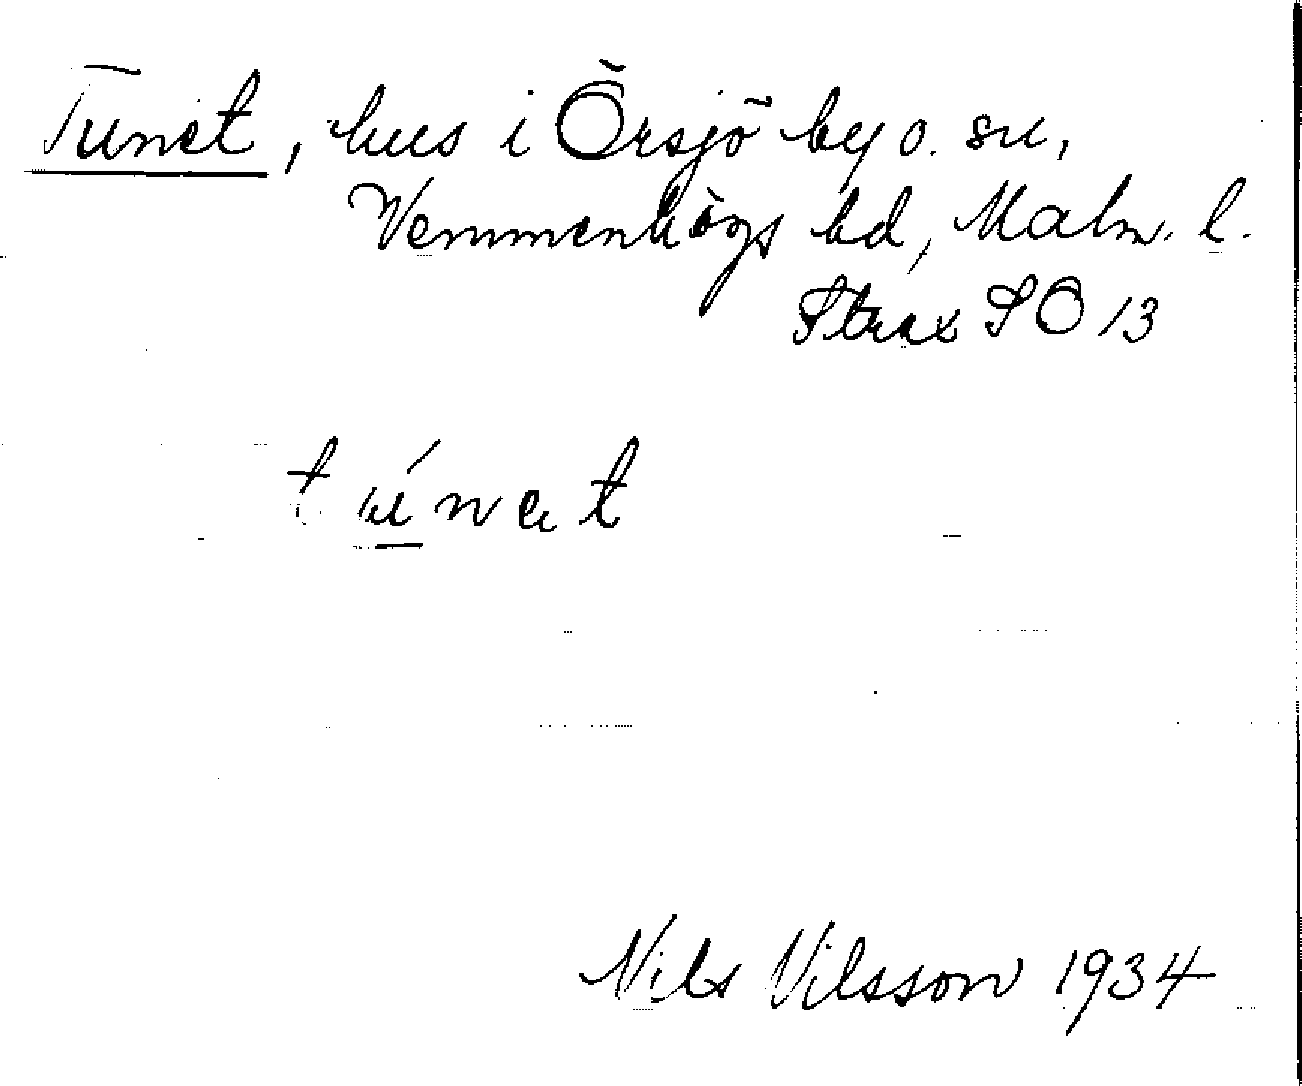 Tunet, hus i Örsjö by o. sn,
Vemmenhögs hd, Malm. l.
Strax SÖ 13
túnət
Nils Nilsson 1934